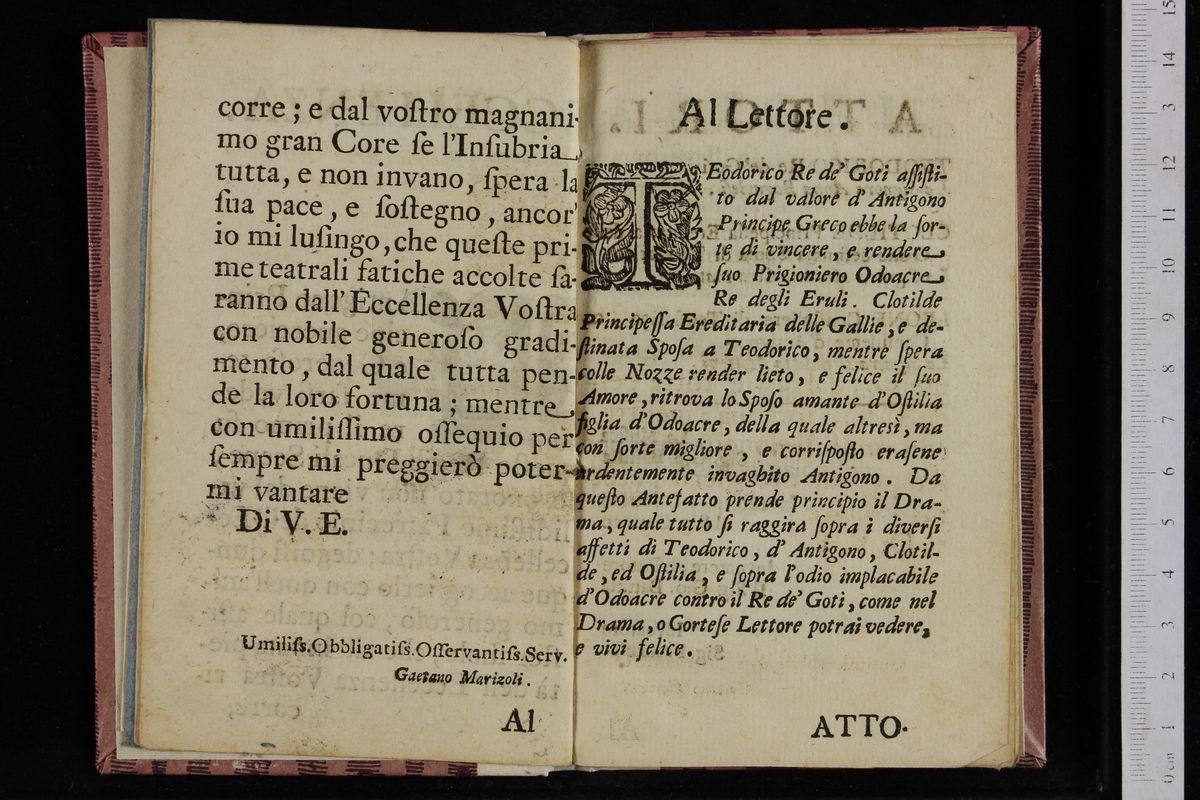 corre; e dal voſtro magnani-
mo gran Core ſe l'Inſubria
tutta, e non invano, ſpera la
ſua pace, e ſoſtegno, ancor'
io mi luſingo, che queſte pri-
me teatrali fatiche accolte ſa-
ranno dall' Eccellenza Voſtra
con nobile generoſo gradi-
mento, dal quale tutta pen-
de la loro fortuna; mentre
con umiliſſimo oſſequio per
ſempre mi preggierò poter-
mi vantare
Di V. E.
Umiliſs. Obbligatiſs. Oſſervantiſs. Serv.
Gaetano Marizoli.
Al
Al Lettore.
TEodorico Re de' Goti aſſiſti-
to dal valore d'Antigono
Principe Greco ebbe la ſor-
te di vincere, e rendere
ſuo Prigioniero Odoacre
Re degli Eruli. Clotilde
Principeſſa Ereditaria delle Gallie, e de-
ſtinata Spoſa a Teodorico, mentre ſpera
colle Nozze render lieto, e felice il ſuo
Amore, ritrova lo Spoſo amante d'Oſtilia
figlia d'Odoacre, della quale altresì, ma
con ſorte migliore, e corriſpoſto eraſene
ardentemente invaghito Antigono. Da
queſto Antefatto prende principio il Dra-
ma, quale tutto ſi raggira ſopra i diverſi
affetti di Teodorico, d'Antigono, Clotil-
de, ed Oſtilia, e ſopra l'odio implacabile
d'Odoacre contro il Re de' Goti, come nel
Drama, o Corteſe Lettore potrai vedere,
e vivi felice.
ATTO.
0 cm 1 2 3 4 5 6 7 8 9 10 11 12 13 14 15